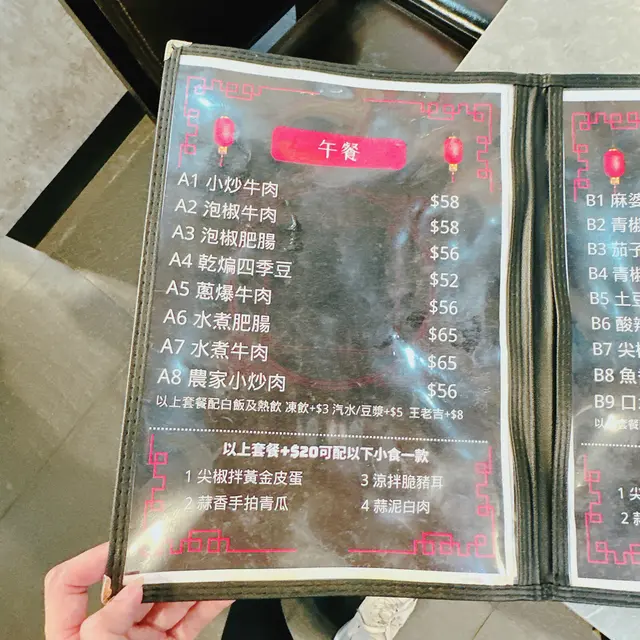 午餐
A1 小炒牛肉 $58
A2 泡椒牛肉 $58
A3 泡椒肥腸 $56
A4 乾煸四季豆 $52
A5 蔥爆牛肉 $56
A6 水煮肥腸 $65
A7 水煮牛肉 $65
A8 農家小炒肉 $56
以上套餐配白飯及熱飲 凍飲+$3 汽水/豆漿+$5 王老吉+$8
以上套餐+$20可配以下小食一款
1 尖椒拌黃金皮蛋 3 涼拌脆豬耳
2 蒜香手拍青瓜 4 蒜泥白肉
B1 麻婆
B2 青椒
B3 茄子
B4 青椒
B5 土
B6 酸
B7 尖
B8 魚
B9 口
以上套
1 尖
2